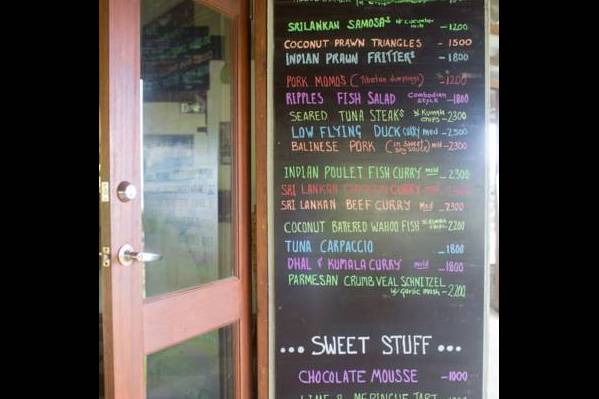 SRI LANKAN SAMOSAS w/ cucumber -1200
COCONUT PRAWN TRIANGLES - 1500
INDIAN PRAWN FRITTERS -1800
PORK MOMOS (Tibetan dumplings) -1200
RIPPLES FISH SALAD Cambodian style -1800
SEARED TUNA STEAKS w/ Kumala chips -2300
LOW FLYING DUCK curry med -2500
BALINESE PORK (in sweet soy sauce) mild -2300
INDIAN POULET FISH CURRY mild -2300
SRI LANKAN CHICKEN CURRY
SRI LANKAN BEEF CURRY med -2300
COCONUT BATERED WAHOO FISH -2200
TUNA CARPACCIO -1800
DHAL & KUMALA CURRY mild -1800
PARMESAN CRUMB VEAL SCHNITZEL
w/ garlic mash -2200
... SWEET STUFF ...
CHOCOLATE MOUSSE -1000
LIME & MERINGUE TART